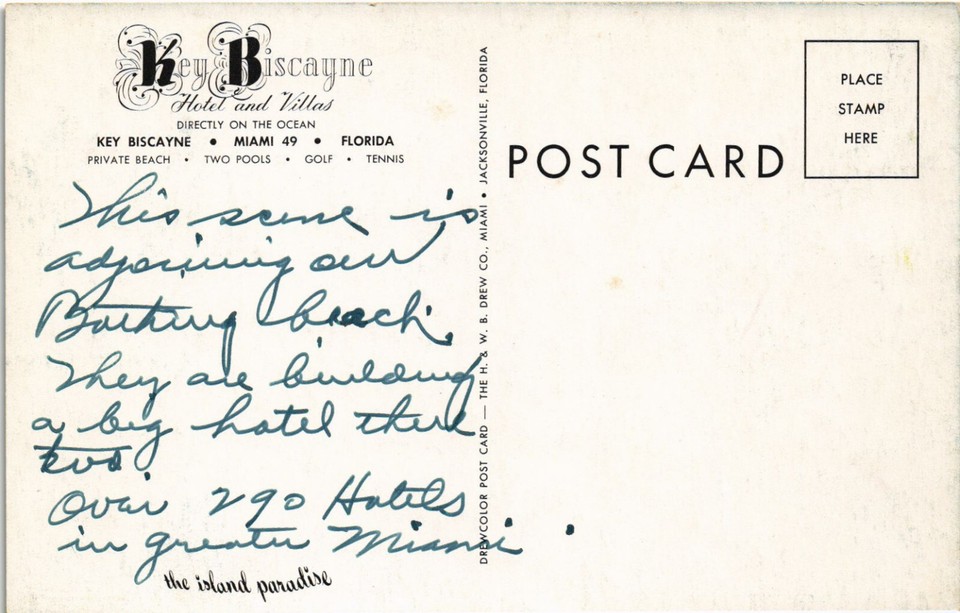 Key Biscayne
Hotel and Villas
DIRECTLY ON THE OCEAN
KEY BISCAYNE • MIAMI 49 • FLORIDA
PRIVATE BEACH • TWO POOLS • GOLF • TENNIS
This scene is
adjoining our
Bathing beach.
They are building
a big hotel there
too.
Over 290 Hotels
in greater Miami.
the island paradise
DREWCOLOR POST CARD — THE H. & W. B. DREW CO., MIAMI • JACKSONVILLE, FLORIDA
POST CARD
PLACE
STAMP
HERE